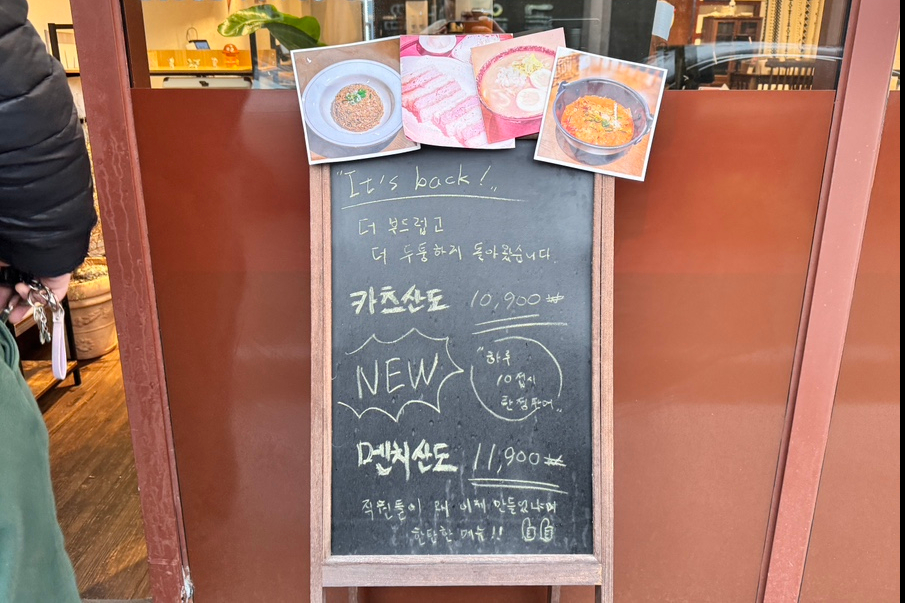 "It's back!"
더 부드럽고
더 두툼하게 돌아왔습니다.
카츠산도 10,900₩
NEW
"하루
10접시
한정판매"
멘치산도 11,900₩
직원들이 왜 이제 만들었냐며
한탄한 메뉴!!